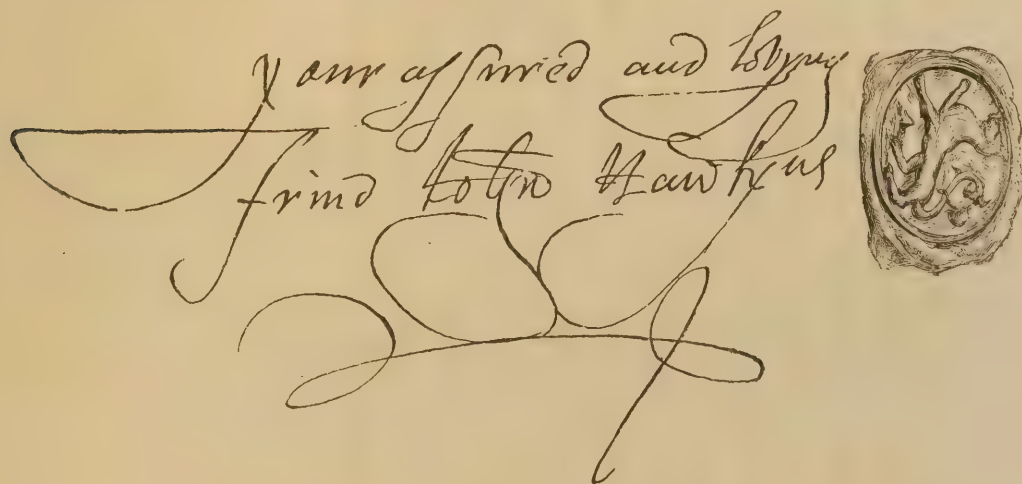 your assured and lovyng
frind John Hawkyns